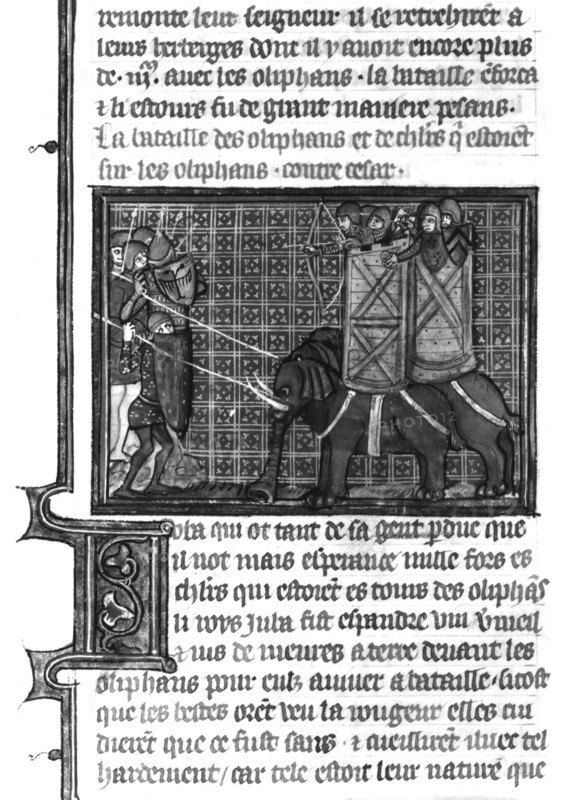 remonte leur seigneur il se retrehirēt a
leurs herberges dont il y auoit encore plus
de .iiij. auec les oliphans . la bataille ēforca
⁊ li estours fu de grant maniere pesans .
La bataille des oliphans et de chl̄rs q̄ estoiēt
sur les oliphans . contre cesar .
Iuba qui ot tant de sa gent ꝑdue que
il not mais esperance mille fors es
chl̄rs qui estoiēt es tours des oliphās
li roys Juba fist espandre vin v̄meil
⁊ ius de meures a terre deuant les
oliphans pour eulz aviuer a bataille . si tost
que les bestes orēt veu la rougeur elles cui
dierēt que ce fust sans . ⁊ cueillirēt illuec tel
hardement / car tele estoit leur nature que